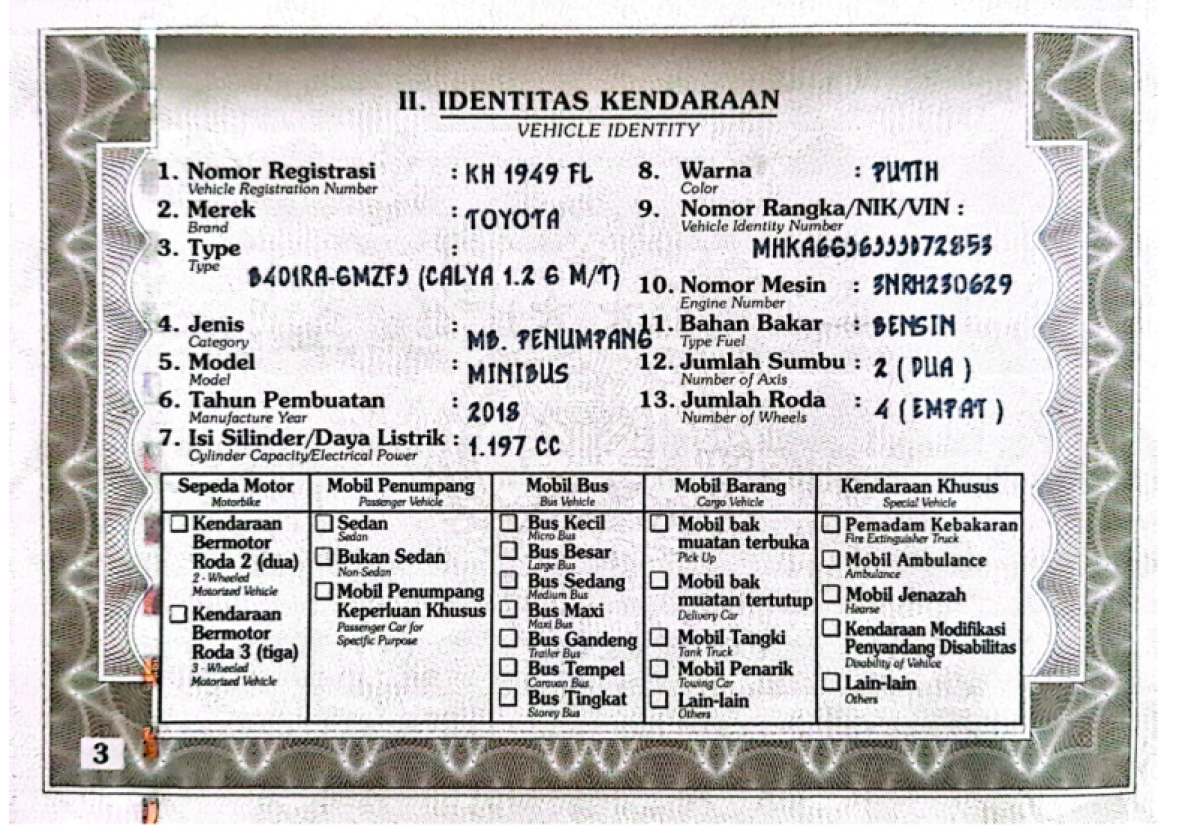 II. IDENTITAS KENDARAAN
VEHICLE IDENTITY
1. Nomor Registrasi : KH 1949 FL
Vehicle Registration Number
2. Merek : TOYOTA
Brand
3. Type :
Type
B401RA-GMZFJ (CALYA 1.2 G M/T)
4. Jenis : MB. PENUMPANG
Category
5. Model : MINIBUS
Model
6. Tahun Pembuatan : 2018
Manufacture Year
7. Isi Silinder/Daya Listrik : 1.197 CC
Cylinder Capacity/Electrical Power
8. Warna : PUTIH
Color
9. Nomor Rangka/NIK/VIN :
Vehicle Identity Number
MHKA6GJ6JJJ072853
10. Nomor Mesin : 3NRH230629
Engine Number
11. Bahan Bakar : BENSIN
Type Fuel
12. Jumlah Sumbu : 2 ( DUA )
Number of Axis
13. Jumlah Roda : 4 ( EMPAT )
Number of Wheels
Sepeda Motor
Motorbike
Kendaraan
Bermotor
Roda 2 (dua)
2 - Wheeled
Motorized Vehicle
Kendaraan
Bermotor
Roda 3 (tiga)
3 - Wheeled
Motorized Vehicle
Mobil Penumpang
Passenger Vehicle
Sedan
Sedan
Bukan Sedan
Non-Sedan
Mobil Penumpang
Keperluan Khusus
Passenger Car for
Specific Purpose
Mobil Bus
Bus Vehicle
Bus Kecil
Micro Bus
Bus Besar
Large Bus
Bus Sedang
Medium Bus
Bus Maxi
Maxi Bus
Bus Gandeng
Trailer Bus
Bus Tempel
Caravan Bus
Bus Tingkat
Storey Bus
Mobil Barang
Cargo Vehicle
Mobil bak
muatan terbuka
Pick Up
Mobil bak
muatan tertutup
Delivery Car
Mobil Tangki
Tank Truck
Mobil Penarik
Towing Car
Lain-lain
Others
Kendaraan Khusus
Special Vehicle
Pemadam Kebakaran
Fire Extinguisher Truck
Mobil Ambulance
Ambulance
Mobil Jenazah
Hearse
Kendaraan Modifikasi
Penyandang Disabilitas
Disability of Vehilce
Lain-lain
Others
3